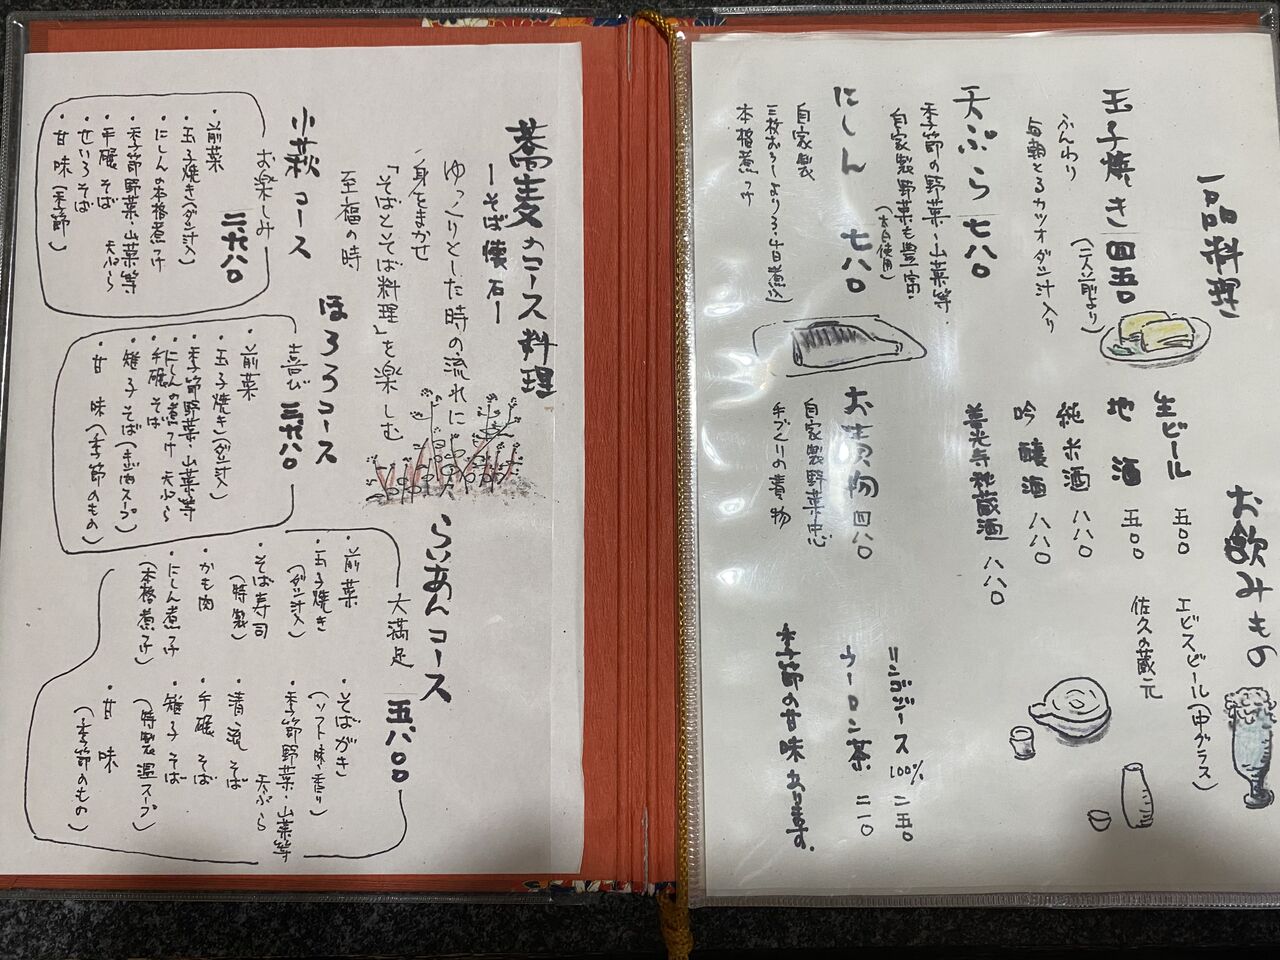 一品料理
玉子焼き 四五〇
(二人前より)
ふんわり
毎朝とるカツオダシ汁入り
天ぷら 七八〇
季節の野菜・山菜等・
自家製野菜も豊富・
にしん 七八〇
自家製
三枚おろしより3、4日煮込
本格煮つけ
お漬物 四八〇
自家製野菜中心
手づくりの漬物
お飲みもの
生ビール 五〇〇
エビスビール(中グラス)
地酒 五〇〇
佐久の蔵元
純米酒 八八〇
吟醸酒 八八〇
善光寺秘蔵酒 八八〇
リンゴジュース100% 二五〇
ウーロン茶 二一〇
季節の甘味あります。
蕎麦のコース料理
ーそば懐石ー
ゆっくりとした時の流れに
身をまかせ
「そばとそば料理」を楽しむ
至福の時
小萩コース
お楽しみ 二六八〇
・前菜
・玉子焼き(ダシ汁入)
・にしんの本格煮つけ
・季節野菜・山菜等 天ぷら
・手碾そば
・せいろそば
・甘味(季節)
ほろろコース
喜び 三六八〇
・前菜
・玉子焼き(ダシ汁入)
・季節野菜・山菜等 天ぷら
・にしんの煮つけ
・手碾そば
・雉子そば(きじ肉スープ)
・甘味(季節のもの)
らいあんコース
大満足 五八〇〇
・前菜
・玉子焼き
(ダシ汁入)
・そば寿司
(特製)
・かも肉
・にしん煮つけ
(本格煮つけ)
・そばがき
(ソフト味・香り)
・季節野菜・山菜等 天ぷら
・清流そば
・手碾そば
・雉子そば
(特製温スープ)
・甘味
(季節のもの)